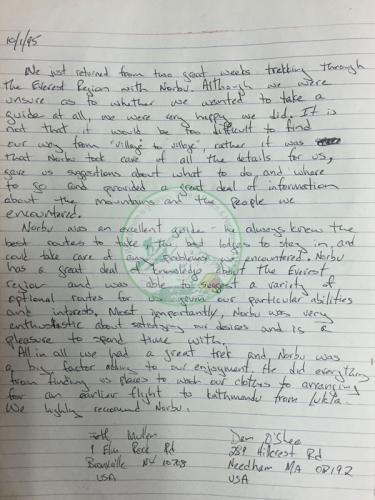 10/1/95
We just returned from two great weeks trekking through
the Everest Region with Norbu. Although we were
unsure as to whether we wanted to take a
guide at all, we were very happy we did. It is
not that it would be too difficult to find
our way from "village to village", rather it was
that Norbu took care of all the details for us,
gave us suggestions about what to do, and where
to go and provided a great deal of information
about the mountains and the people we
encountered.
Norbu was an excellent guide - he always knew the
best routes to take, the best lodges to stay in, and
could take care of any problems we encountered. Norbu
has a great deal of knowledge about the Everest
region and was able to suggest a variety of
optional routes for us given our particular abilities
and interests. Most importantly, Norbu was very
enthusiastic about satisfying our desires and is a
pleasure to spend time with.
All in all we had a great trek and Norbu was
a big factor adding to our enjoyment. He did everything
from finding us places to wash our clothes to arranging
for an earlier flight to Kathmandu from Lukla.
We highly recommend Norbu.
Mullen
1 Elm Rock Rd
Bronxville NY 10708
USA
Dan O'Shea
289 Hillcrest Rd
Needham MA 02192
USA